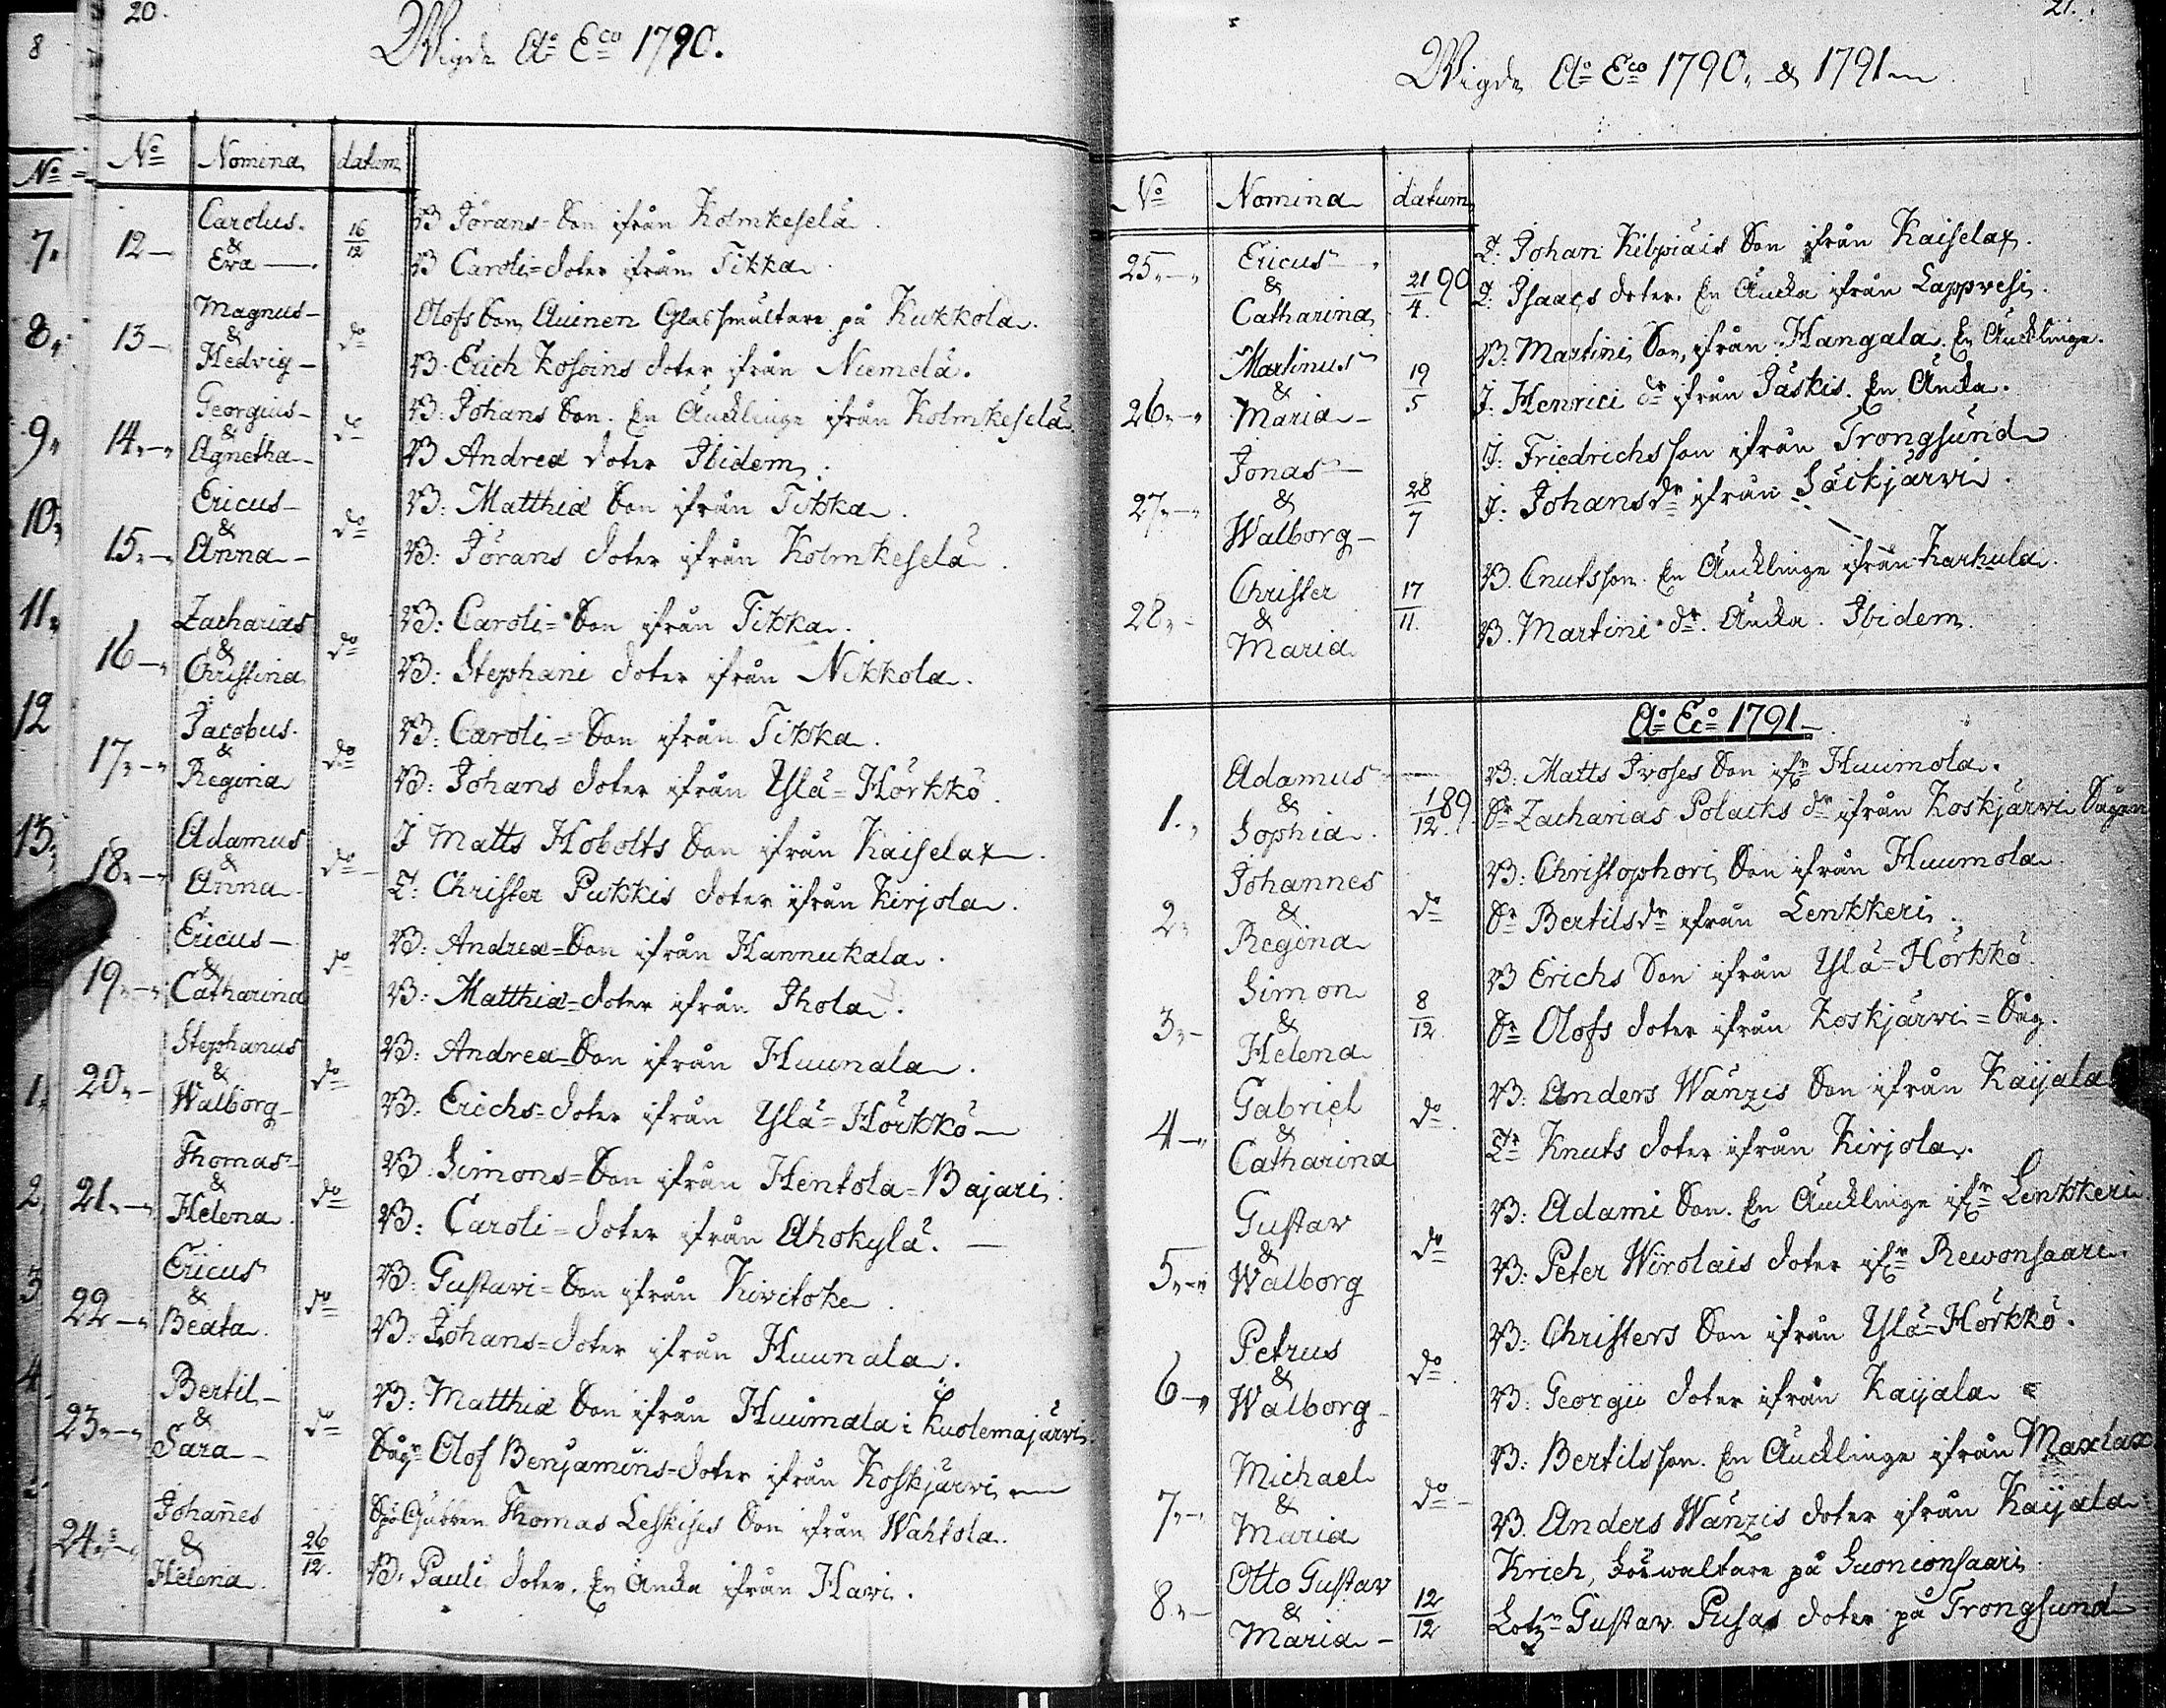 20.
Wigde Ao Eco 1790.
No Nomina datum
12 Carolus. & Eva 16/12
B Jörans-Son ifrån Kolmkeselä.
B Caroli-doter ifrån Tikka
13 Magnus & Hedvig do
Olofs Son Auinen Glassmältare på Kukkola.
B. Erich Kosoins doter ifrån Niemelä.
14 Georgius & Agnetha do
B: Johans Son. En Äncklinge ifrån Kolmkeselä.
B Andreæ doter Ibidem.
15 Ericus & Anna do
B: Matthiæ Son ifrån Tikka.
B: Jörans doter ifrån Kolmkeselä.
16 Zacharias & Christina do
B: Caroli=Son ifrån Tikka.
B: Stephani doter ifrån Nikkola.
17 Jacobus. & Regina do
B: Caroli=Son ifrån Tikka.
B: Johans doter ifrån Ylä=Hörkkö.
18 Adamus & Anna do
I Matts Hobolts Son ifrån Kaiselax.
I: Christer Pukkis doter ifrån Kirjola.
19 Ericus & Catharina do
B: Andreæ=Son ifrån Hannukala.
B: Matthiæ=doter ifrån Ihola.
20 Stephanus & Walborg do
B: Andreæ=Son ifrån Huunala.
B: Erichs=doter ifrån Ylä=Hörkkö
21 Thomas & Helena. do
B: Simons=Son ifrån Hentola=Bajari.
B: Caroli=doter ifrån Ahokylä.
22 Ericus & Beata. do
B: Gustavi=Son ifrån Kivitoke.
B: Johans=doter ifrån Huunala.
23 Bertil & Sara do
B: Matthiæ Son ifrån Huumala i Kuolemajärvi.
Såg: Olof Benjamins=doter ifrån Koskjärvi
24 Johañes & Helena. 26/12.
Gubben Thomas Leskises Son ifrån Wahtola.
B. Pauli doter. En Äncka ifrån Havi.
8
No
7.
8.
9.
10.
11.
12
13.
1.
2.
3
4.
21.
Wigde Ao Eco 1790. & 1791
No Nomina datum
25 Ericus & Catharina 21/4. 90
I: Johan Kilpiäis Son ifrån Kaiselax.
I: Isaacs doter. En Äncka ifrån Lappvesi.
26 Martinus & Maria 19/5
B. Martini Son, ifrån Hangala. En Äncklinge.
I: Henrici dr ifrån Jäskis. En Äncka.
27 Jonas & Walborg 28/7
I: Friedrichsson ifrån Trongsund
I: Johansdr ifrån Säckjärvi.
28 Christer & Maria 17/11.
B. Cnutsson. En Äncklinge ifrån Karhula.
B. Martini dr. Äncka. Ibidem.
Ao Eo 1791
1. Adamus & Sophia. 1/12. 89.
B: Matts Ivoses Son ifr Huumola.
Sr Zacharias Polacks dr ifrån Koskjärvi Sågen
2 Johannes & Regina do
B: Christophori Son ifrån Huumola.
Sr Bertilsdr ifrån Lenkkeri.
3 Simon & Helena 8/12.
B Erichs Son ifrån Ylä=Hörkkö.
Sr Olofs doter ifrån Koskjärvi=Såg.
4 Gabriel & Catharina do.
B: Anders Wänzis Son ifrån Kaijala
Ir Knuts doter ifrån Kirjola.
5 Gustav & Walborg do
B: Adami Son. En Äncklinge ifr Lenkkeri
B: Peter Wirolais doter ifr Rewonsaari.
6 Petrus & Walborg do.
B: Christers Son ifrån Ylä=Hörkkö.
B: Georgii doter ifrån Kaijala
7 Michael & Maria do
B: Bertilsson. En Äncklinge ifrån Maxlax
B. Anders Wänzis doter ifrån Kaijala
8 Otto Gustav & Maria 12/12
Krich, Förwaltare på Suonionsaari
Lotz Gustav Pusas doter på Trongsund